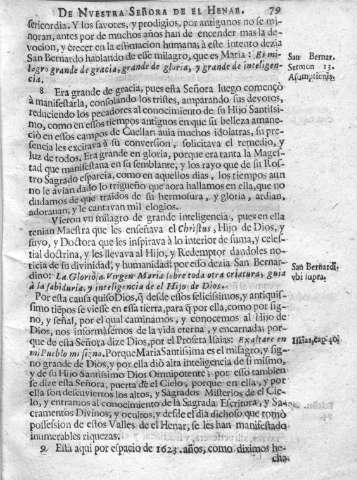 DE NVESTRA SEÑORA DE EL HENAR. 79
sericordia. Y los favores, y prodigios, por antiguos no se mi-
noran, antes por de muchos años han de encender mas la de-
vocion, y crecer en la estimacion humana; à este intento dezia
San Bernardo hablando de ese milagro, que es Maria: Es mi-
lagro grande de gracia, grande de gloria, y grande de inteligen-
cia.
San Bernar.
Sermon 13.
Asumptionis.
8. Era grande de gracia, pues esta Señora luego començò
à manifestarla, consolando los tristes, amparando sus devotos,
reduciendo los pecadores al conocimiento de su Hijo Santissi-
mo, como en estos tiempos antiguos en que su belleza amane-
ciò en estos campos de Cuellar: auia muchos idolatras, su pre-
sencia les excitava à su conversion, solicitava el remedio, y
luz de todos. Era grande en gloria, porque era tanta la Magest-
tad que manifestava en su semblante, y los rayo que de su Ros-
tro Sagrado esparcia, como en aquellos dias, los tiempos aun
no le avian dado lo trigueño que aora hallamos en ella, que no
dudamos de que traidos de su hermosura, y gloria, ardian,
adorauan, y le cantavan mil elogios.
Vieron vn milagro de grande inteligencia, pues en ella
tenian Maestra que les enseñava el Christus, Hijo de Dios, y
suyo, y Doctora que les inspirava à lo interior de suma, y celes-
tial doctrina, y les llevava al Hijo, y Redemptor dandoles no-
ticia de su divinidad, y humanidad: por esso dezia San Bernar-
dino: La Gloriosa Virgen Maria sobre toda otra criatura, guia
à la sabiduria, y inteligencia de el Hijo de Dios.
San Bernardi,
vbi supra.
Por esta causa quiso Dios, q̃ desde estos felicissimos, y antiquis-
simo tiẽpos se viesse en essa tierra, para q̃ por ella, como por sig-
no, y señal, por el qual caminamos, y conocemos al Hijo de
Dios, nos informàsemos de la vida eterna, y encarnada: por-
que de esta Señora dize Dios, por el Profeta Isaias: Exaltare en
mi Pueblo mi signo. Porque Maria Santissima es el milagro, y sig-
no grande de Dios, y por ella diò alta inteligencia de si mismo,
y de su Hijo Santissimo Dios Omnipotente: por esso tambien
se dize esta Señora, puerta de el Cielo, porque en ella, y por
ella son descuviertos los altos, y Sagrados Misterios de el Cie-
lo, y entramos al conocimiento de la Sagrada Escritura, y Sa-
cramentos Divinos, y ocultos, y desde el dia dichoso que tomò
possession de estos Valles de el Henar, se les han manifestado
inumerables riquezas.
Isaias, cap. 49.
9. Està aqui por espacio de 1623. años, como diximos he-
cha